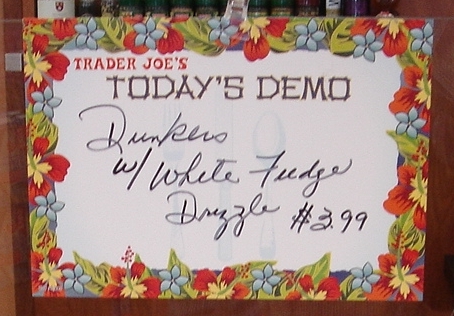 TRADER JOE'S
TODAY'S DEMO
Dunkers
w/ White Fudge
Drizzle $3.99